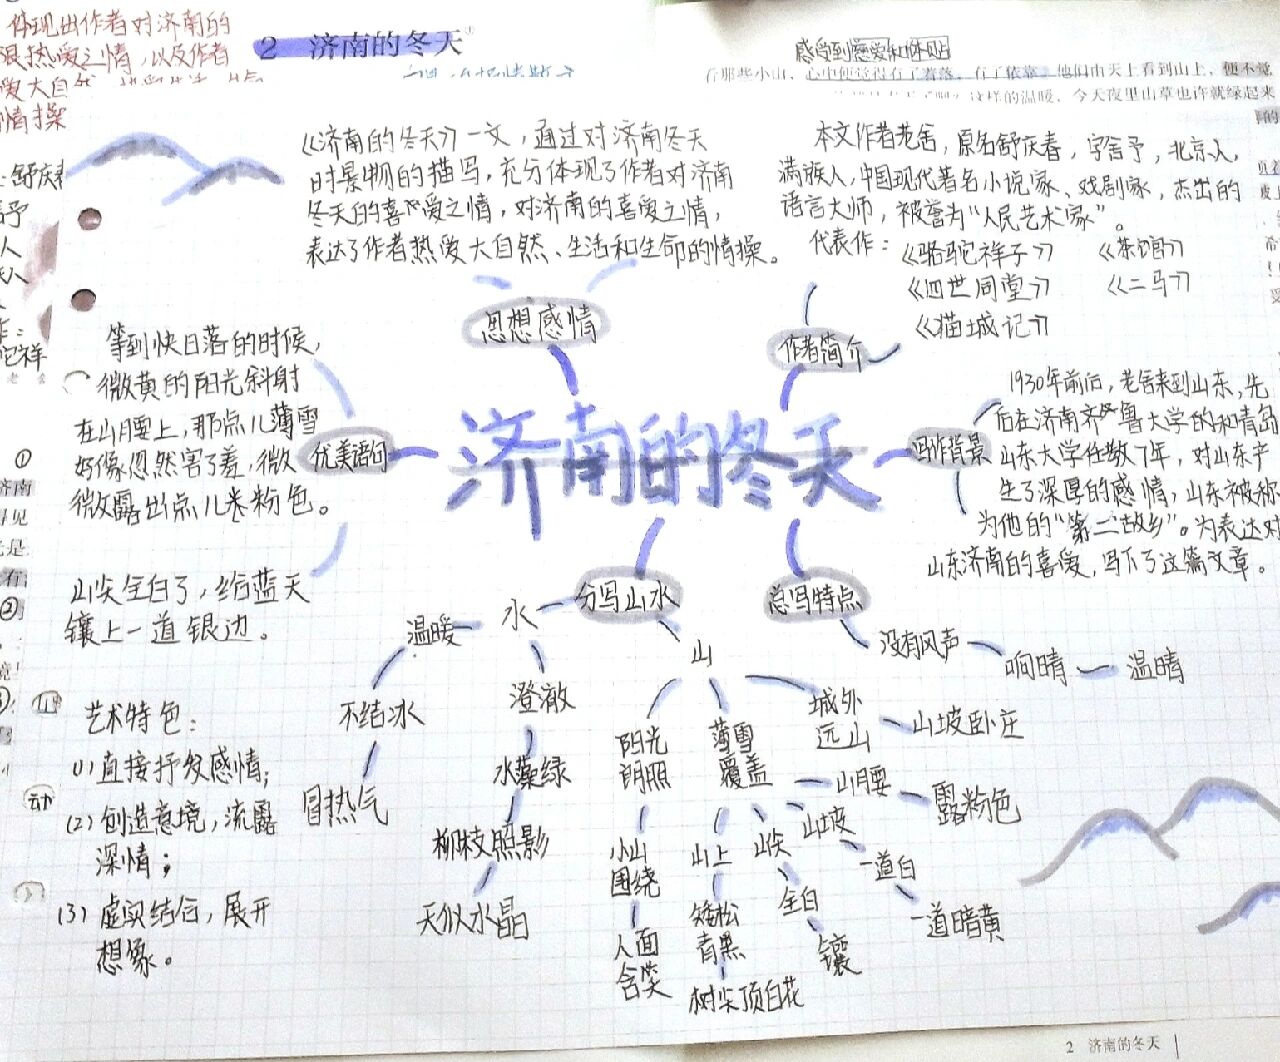 体现出作者对济南的
热爱之情，以及作者
爱大自然
情操
2 济南的冬天
感受到慈爱和体贴
看那些小山，心中便觉得有了着落，有了依靠。他们由天上看到山上，便不觉
这样的温暖，今天夜里山草也许就绿起来
《济南的冬天》一文，通过对济南冬天
时景物的描写，充分体现了作者对济南
冬天的喜爱之情，对济南的喜爱之情，
表达了作者热爱大自然、生活和生命的情操。
本文作者老舍，原名舒庆春，字舍予，北京人，
满族人，中国现代著名小说家、戏剧家，杰出的
语言大师，被誉为“人民艺术家”。
代表作：《骆驼祥子》 《茶馆》
《四世同堂》 《二马》
《猫城记》
思想感情
作者简介
等到快日落的时候，
微黄的阳光斜射
在山腰上，那点儿薄雪
好像忽然害了羞，微
微露出点儿卷粉色。
优美语句
济南的冬天
写作背景
1930年前后，老舍来到山东，先
后在济南齐鲁大学的和青岛
山东大学任教7年，对山东产
生了深厚的感情，山东被称
为他的“第二故乡”。为表达对
山东济南的喜爱，写下了这篇文章。
山尖全白了，给蓝天
镶上一道银边。
分写山水
总写特点
水
温暖
不结冰
冒热气
澄澈
水藻绿
柳枝照影
天似水晶
山
阳光
朗照
小山
围绕
人面
含笑
薄雪
覆盖
山上
矮松
青黑
树尖顶白花
山尖
全白
镶
山坡
一道白
一道暗黄
山腰
露粉色
城外
远山
山坡卧庄
没有风声
响晴
温晴
艺术特色：
(1) 直接抒发感情；
(2) 创造意境，流露
深情；
(3) 虚实结合，展开
想象。
①
济南
②
动
2 济南的冬天